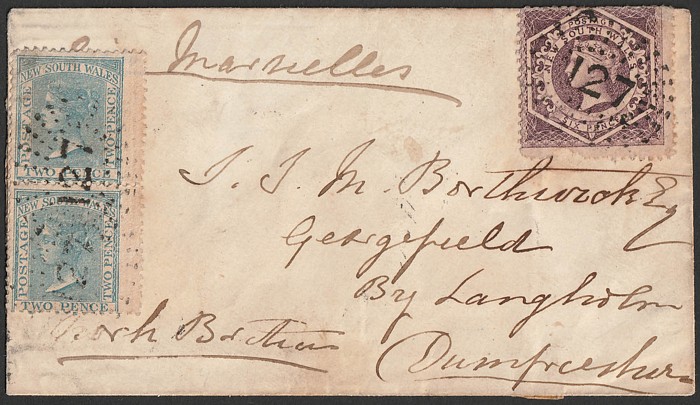 Via Marseilles
POSTAGE
SOUTH WALES
SIX PENCE
127
NEW SOUTH WALES
POSTAGE
TWOPENCE
TWO PENCE
NEW SOUTH WALES
POSTAGE
TWO PENCE
TWO PENCE
J. J. M. Borthwick Esq
Georgefield
By Langholm
Dumfriesshire
North Britain